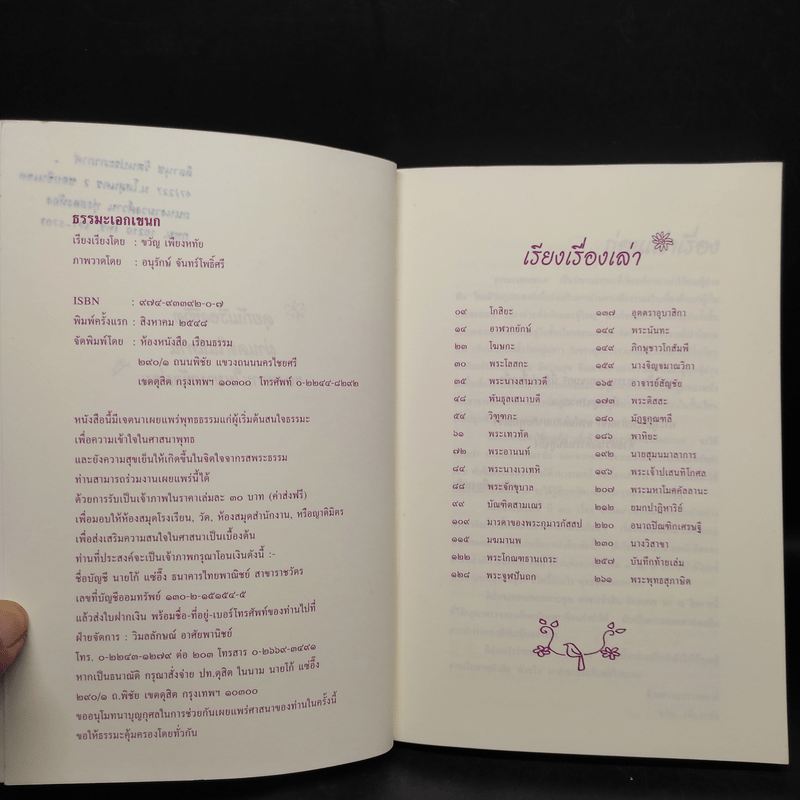 ธรรมะเอกเขนก
เรียงเรียงโดย : ขวัญ เพียงหทัย
ภาพวาดโดย : อนุรักษ์ จันทร์โพธิ์ศรี
ISBN : ๙๗๔-๙๓๓๙๒-๐-๗
พิมพ์ครั้งแรก : สิงหาคม ๒๕๔๘
จัดพิมพ์โดย : ห้องหนังสือ เรือนธรรม
๒๙๐/๑ ถนนพิชัย แขวงถนนนครไชยศรี
เขตดุสิต กรุงเทพฯ ๑๐๓๐๐ โทรศัพท์ ๐-๒๒๔๔-๘๒๙๒
หนังสือนี้มีเจตนาเผยแพร่พุทธธรรมแก่ผู้เริ่มต้นสนใจธรรมะ
เพื่อความเข้าใจในศาสนาพุทธ
และยังความสุขเย็นให้เกิดขึ้นในจิตใจจากรสพระธรรม
ท่านสามารถร่วมงานเผยแพร่นี้ได้
ด้วยการรับเป็นเจ้าภาพในราคาเล่มละ ๓๐ บาท (ค่าส่งฟรี)
เพื่อมอบให้ห้องสมุดโรงเรียน, วัด, ห้องสมุดสำนักงาน, หรือญาติมิตร
เพื่อส่งเสริมความสนใจในศาสนาเป็นเบื้องต้น
ท่านที่ประสงค์จะเป็นเจ้าภาพกรุณาโอนเงินดังนี้ :-
ชื่อบัญชี นายโก้ แซ่อึ๊ง ธนาคารไทยพาณิชย์ สาขาราชวัตร
เลขที่บัญชีออมทรัพย์ ๑๓๐-๒-๑๕๑๕๔-๕
แล้วส่งใบฝากเงิน พร้อมชื่อ-ที่อยู่-เบอร์โทรศัพท์ของท่านไปที่
ฝ่ายจัดการ : วิมลลักษณ์ อาศัยพานิชย์
โทร. ๐-๒๒๔๓-๑๒๗๙ ต่อ ๒๐๓ โทรสาร ๐-๒๖๖๙-๓๔๙๑
หากเป็นธนาณัติ กรุณาสั่งจ่าย ปท.ดุสิต ในนาม นายโก้ แซ่อึ๊ง
๒๙๐/๑ ถ.พิชัย เขตดุสิต กรุงเทพฯ ๑๐๓๐๐
ขออนุโมทนาบุญกุศลในการช่วยกันเผยแพร่ศาสนาของท่านในครั้งนี้
ขอให้ธรรมะคุ้มครองโดยทั่วกัน
เรียงเรื่องเล่า
๐๙ โกสิยะ
๑๔ อาฬวกยักษ์
๒๓ โฆษกะ
๓๐ พระโลสกะ
๓๕ พระนางสามาวดี
๔๘ พันธุลเสนาบดี
๕๔ วิฑูฑภะ
๖๑ พระเทวทัต
๗๒ พระอานนท์
๘๔ พระนางเวเทหิ
๘๘ พระจักขุบาล
๙๙ บัณฑิตสามเณร
๑๐๙ มารดาของพระกุมารกัสสป
๑๑๕ มฆมานพ
๑๒๒ พระโกณฑธานเถระ
๑๒๘ พระจูฬปันถก
๑๓๗ อุตตราอุบาสิกา
๑๔๔ พระนันทะ
๑๔๙ ภิกษุชาวโกสัมพี
๑๕๙ นางจิญจมาณวิกา
๑๖๕ อาจารย์สัญชัย
๑๗๓ พระติสสะ
๑๘๐ มัฏฐกุณฑลี
๑๘๖ พาหิยะ
๑๙๒ นายสุมนมาลาการ
๑๙๖ พระเจ้าปเสนทิโกศล
๒๐๗ พระมหาโมคคัลลานะ
๒๑๒ ยมกปาฏิหาริย์
๒๒๐ อนาถปิณฑิกเศรษฐี
๒๓๐ นางวิสาขา
๒๕๗ บันทึกท้ายเล่ม
๒๖๑ พระพุทธสุภาษิต